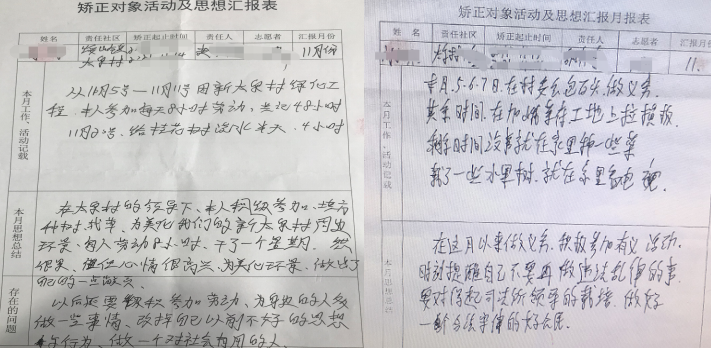 矫正对象活动及思想汇报表
姓名 责任社区 矫正起止时间 责任人 志愿者 汇报月份
太泉村 11月份
本月工作、活动记载
从11月5号—11月11号因新太泉村绿化工
程,本人参加每天8小时劳动,共记48小时
11月23号,给桂花树浇水半天,4小时
本月思想总结
在太泉村的领导下,本人积极参加
种树、栽草,为美化我们的新太泉村周边
环景,每人劳动8小时,干了一个星期,然
很累,但心情很高兴,为美化环景,做出了
自己的一点贡献
存在的问题
以后还要积极参加劳动,为身边的人多
做一些事情,改掉自己以前不好的思想
和行为,做一个对社会有用的人
矫正对象活动及思想汇报月报表
姓名 责任社区 矫正起止时间 责任人 志愿者 汇报月份
11
本月工作、活动记载
本月5.6.7日,在村委会包石头,做义务
其余时间,在加 工地上拉模板
剩下时间没事就在家里种一些菜
栽了一些水果树,就在家里看电视
本月思想总结
在这月以来做义务,积极参加有义活动
时刻提醒自己不要再做违法乱律的事
要对得起司法所领导的栽培,做好
一个合法守律的好公民